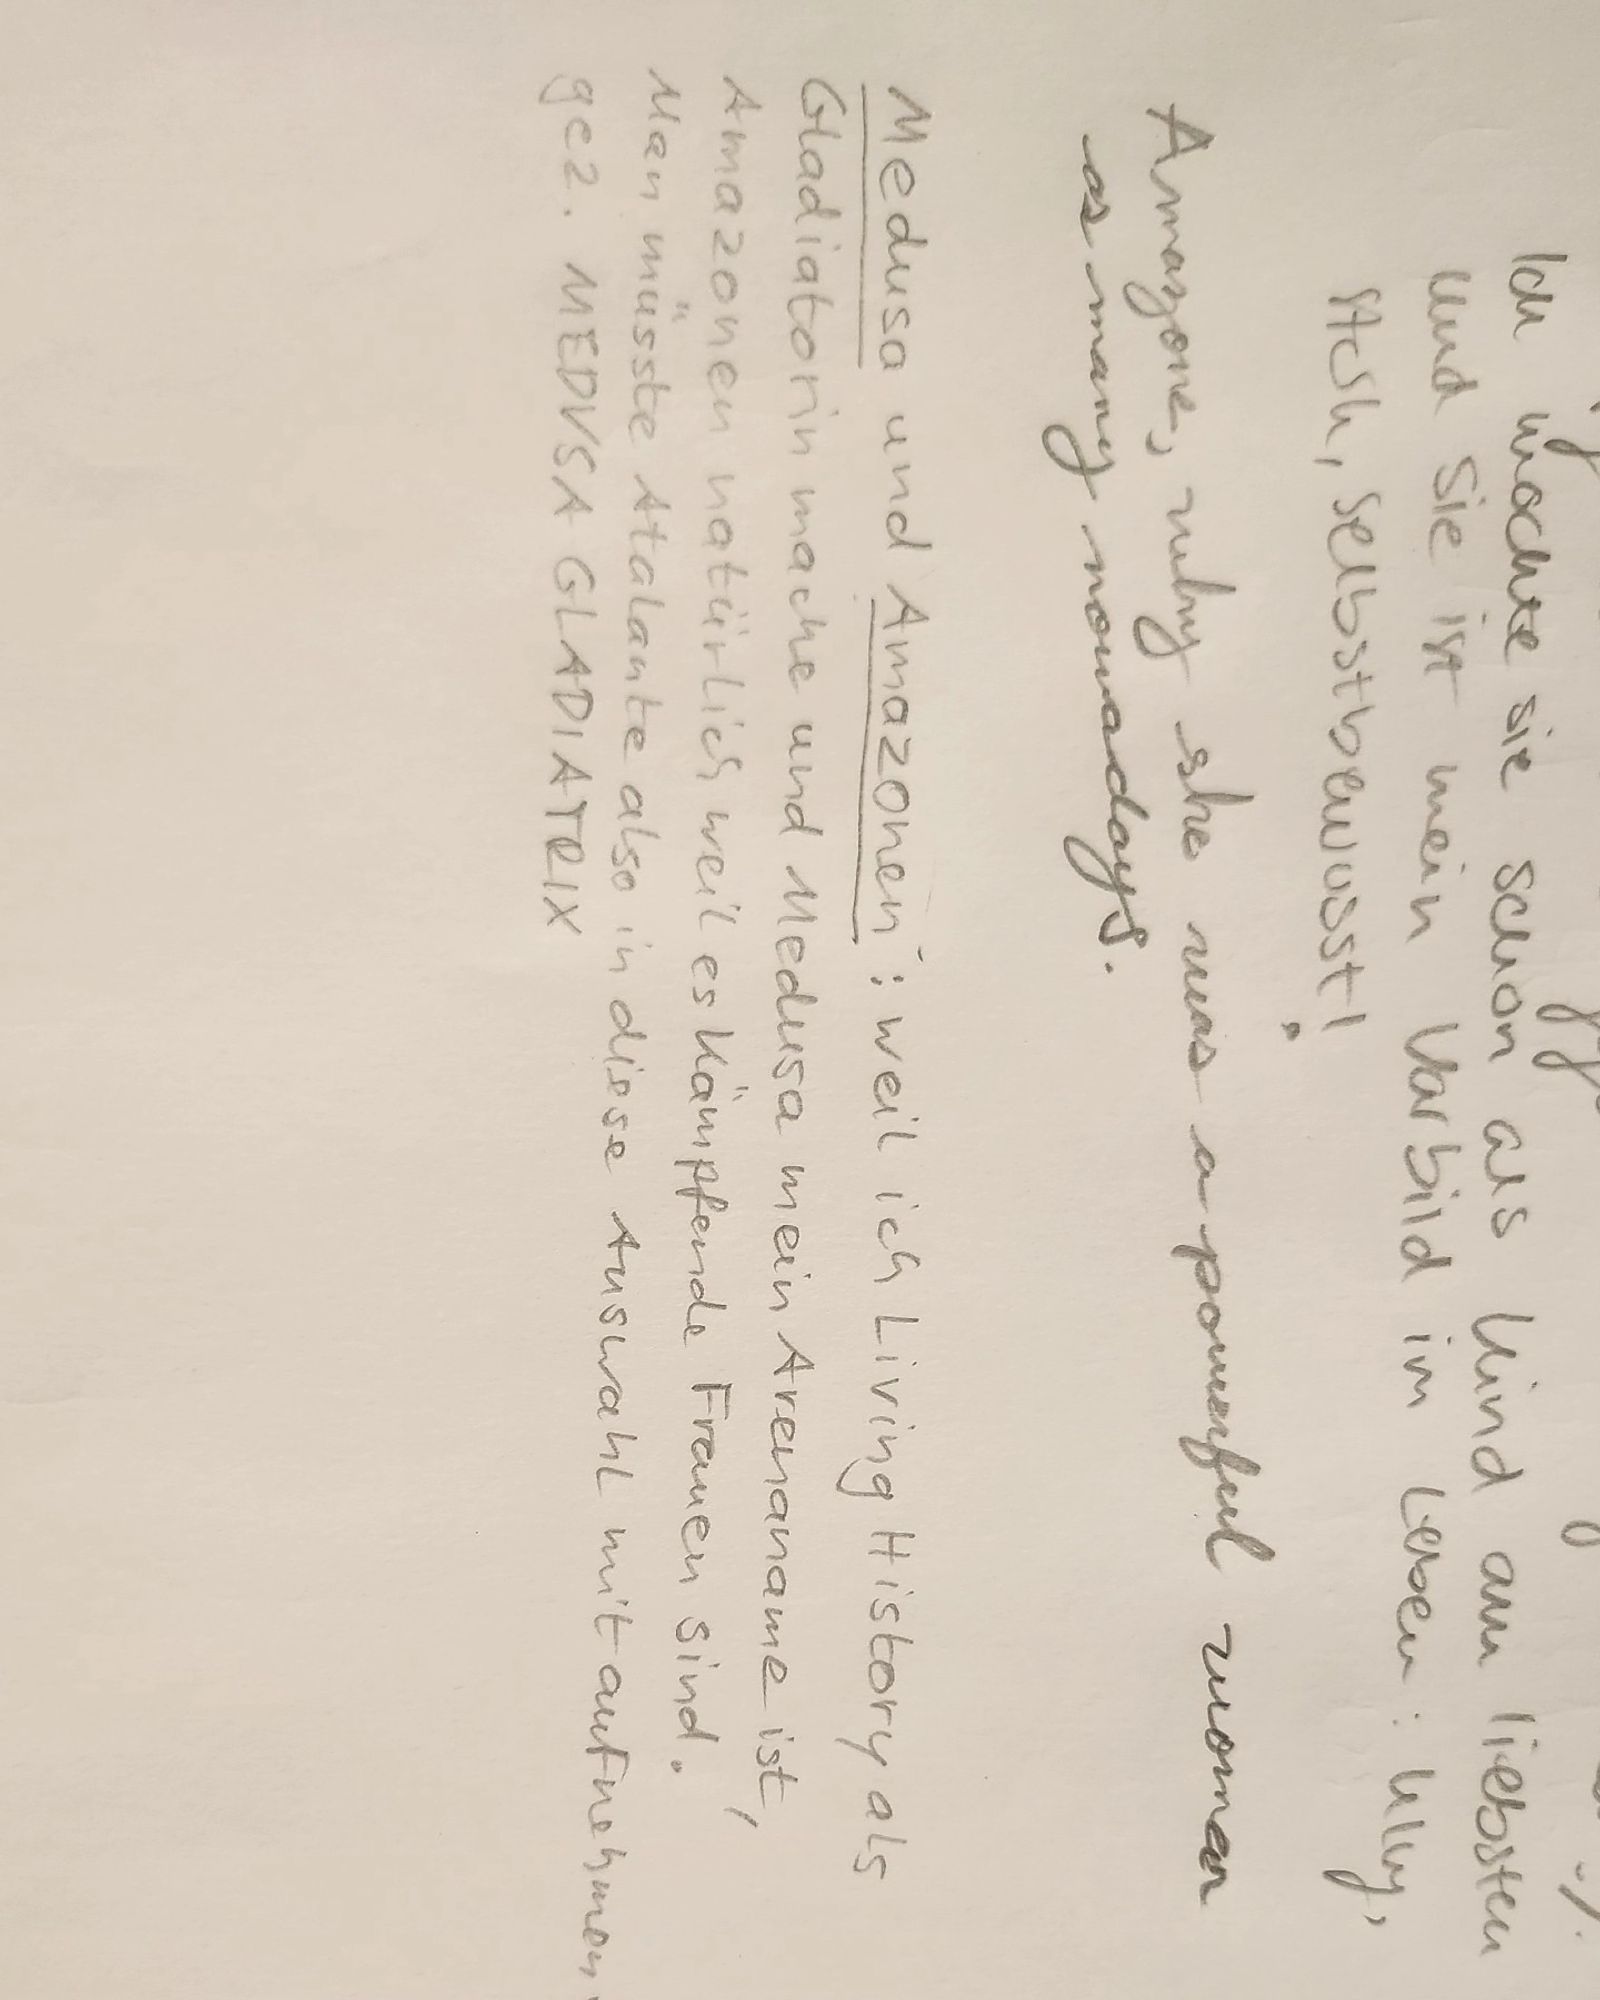 Ich mochte sie schon als Kind am liebsten
und sie ist mein Vorbild im Leben: klug,
stark, selbstbewusst!
Amazone, why she was a powerful woman
as many nowadays.
Medusa und Amazonen: weil ich Living History als
Gladiatorin mache und Medusa mein Arenaname ist,
Amazonen natürlich weil es kämpfende Frauen sind.
Man müsste Atalante also in diese Auswahl mit aufnehmen
gez. MEDVSA GLADIATRIX